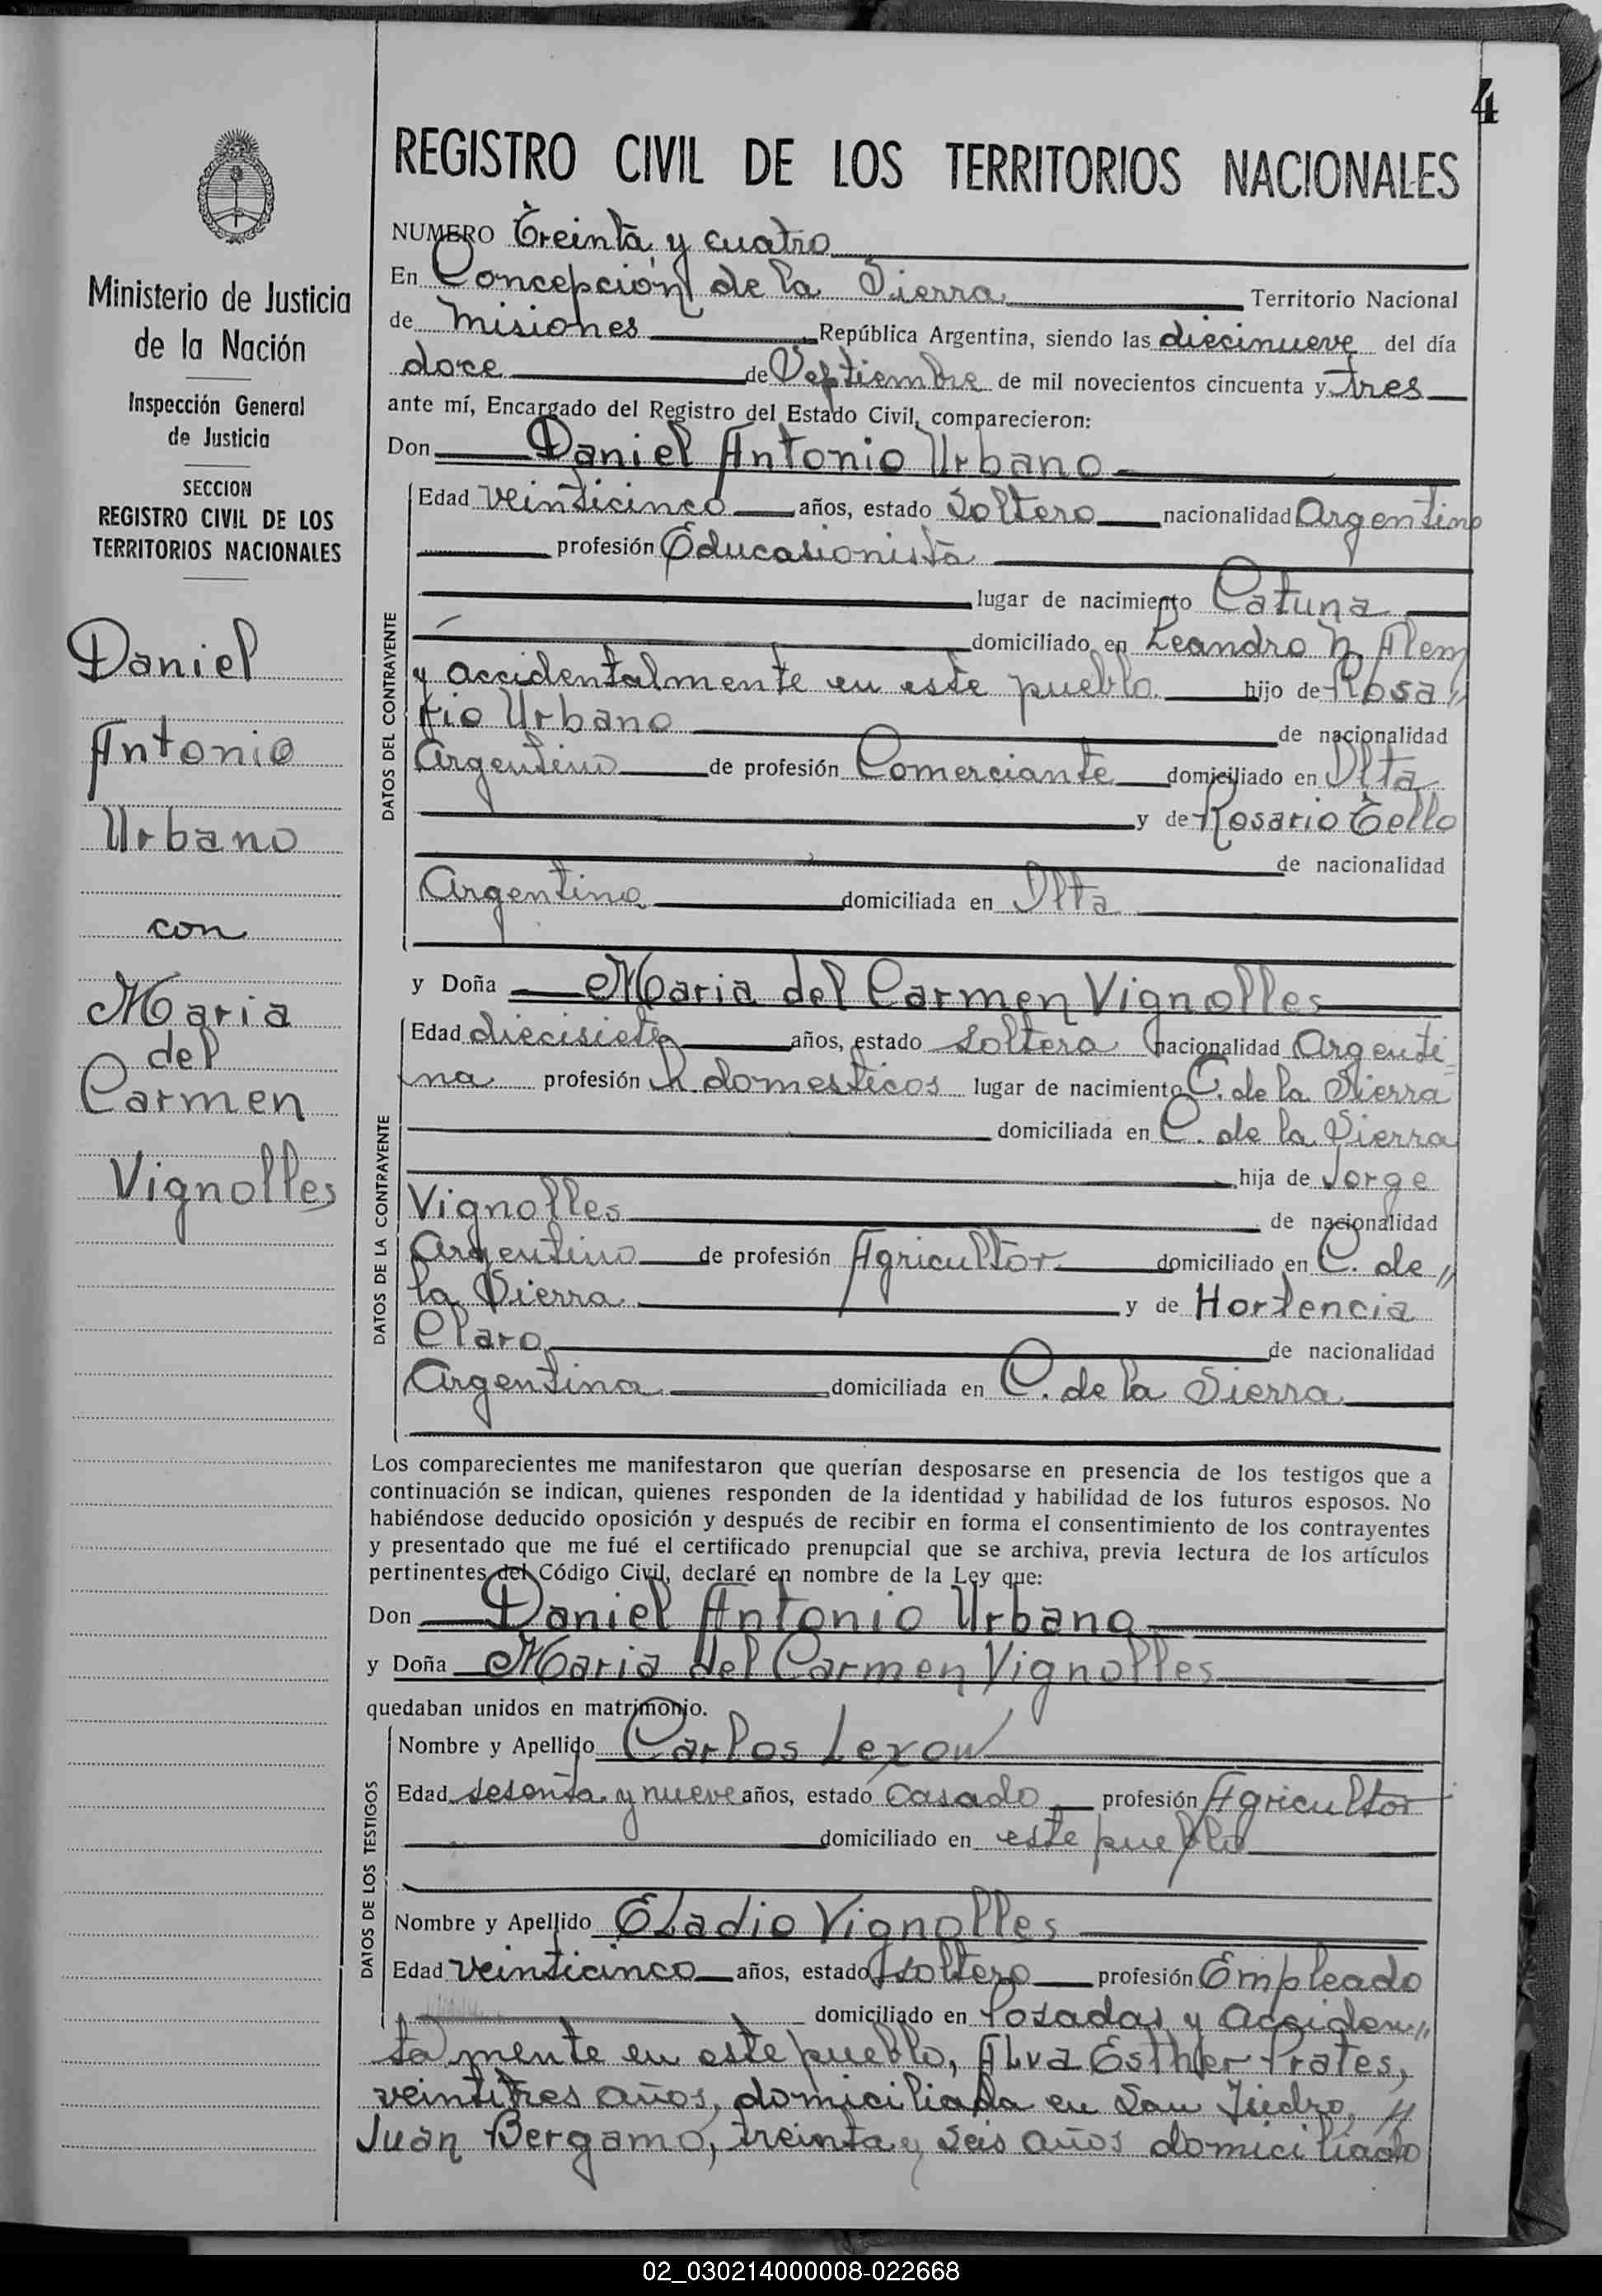 4
REGISTRO CIVIL DE LOS TERRITORIOS NACIONALES
Ministerio de Justicia
de la Nación
Inspección General
de Justicia
SECCION
REGISTRO CIVIL DE LOS
TERRITORIOS NACIONALES
Daniel
Antonio
Urbano
con
Maria
del
Carmen
Vignolles
NUMERO Treinta y cuatro
En Concepción de la Sierra Territorio Nacional
de Misiones República Argentina, siendo las diecinueve del día
doce de Septiembre de mil novecientos cincuenta y tres
ante mí, Encargado del Registro del Estado Civil, comparecieron:
Don Daniel Antonio Urbano
DATOS DEL CONTRAYENTE
Edad veinticinco años, estado Soltero nacionalidad Argentino
profesión Educasionista
lugar de nacimiento Catuna
domiciliado en Leandro N. Alem
y accidentalmente en este pueblo hijo de Rosa"
rio Urbano de nacionalidad
Argentino de profesión Comerciante domiciliado en Olta
y de Rosario Tello
de nacionalidad
Argentina domiciliada en Olta
y Doña Maria del Carmen Vignolles
DATOS DE LA CONTRAYENTE
Edad diecisiete años, estado soltera nacionalidad Argenti=
na profesión Q. domesticos lugar de nacimiento C. de la Sierra
domiciliada en C. de la Sierra
hija de Jorge
Vignolles de nacionalidad
Argentino de profesión Agricultor domiciliado en C. de"
la Sierra y de Hortencia
Claro de nacionalidad
Argentina domiciliada en C. de la Sierra
Los comparecientes me manifestaron que querían desposarse en presencia de los testigos que a
continuación se indican, quienes responden de la identidad y habilidad de los futuros esposos. No
habiéndose deducido oposición y después de recibir en forma el consentimiento de los contrayentes
y presentado que me fué el certificado prenupcial que se archiva, previa lectura de los artículos
pertinentes del Código Civil, declaré en nombre de la Ley que:
Don Daniel Antonio Urbano
y Doña Maria del Carmen Vignolles
quedaban unidos en matrimonio.
DATOS DE LOS TESTIGOS
Nombre y Apellido Carlos Lexow
Edad sesenta y nueve años, estado casado profesión Agricultor
domiciliado en este pueblo
Nombre y Apellido Eladio Vignolles
Edad veinticinco años, estado soltero profesión Empleado
domiciliado en Posadas y acciden"
tamente en este pueblo, Alva Esther Prates,
veintitres años, domiciliada en San Isidro, y
Juan Bergamo, treinta y seis años domiciliado
02_030214000008-022668